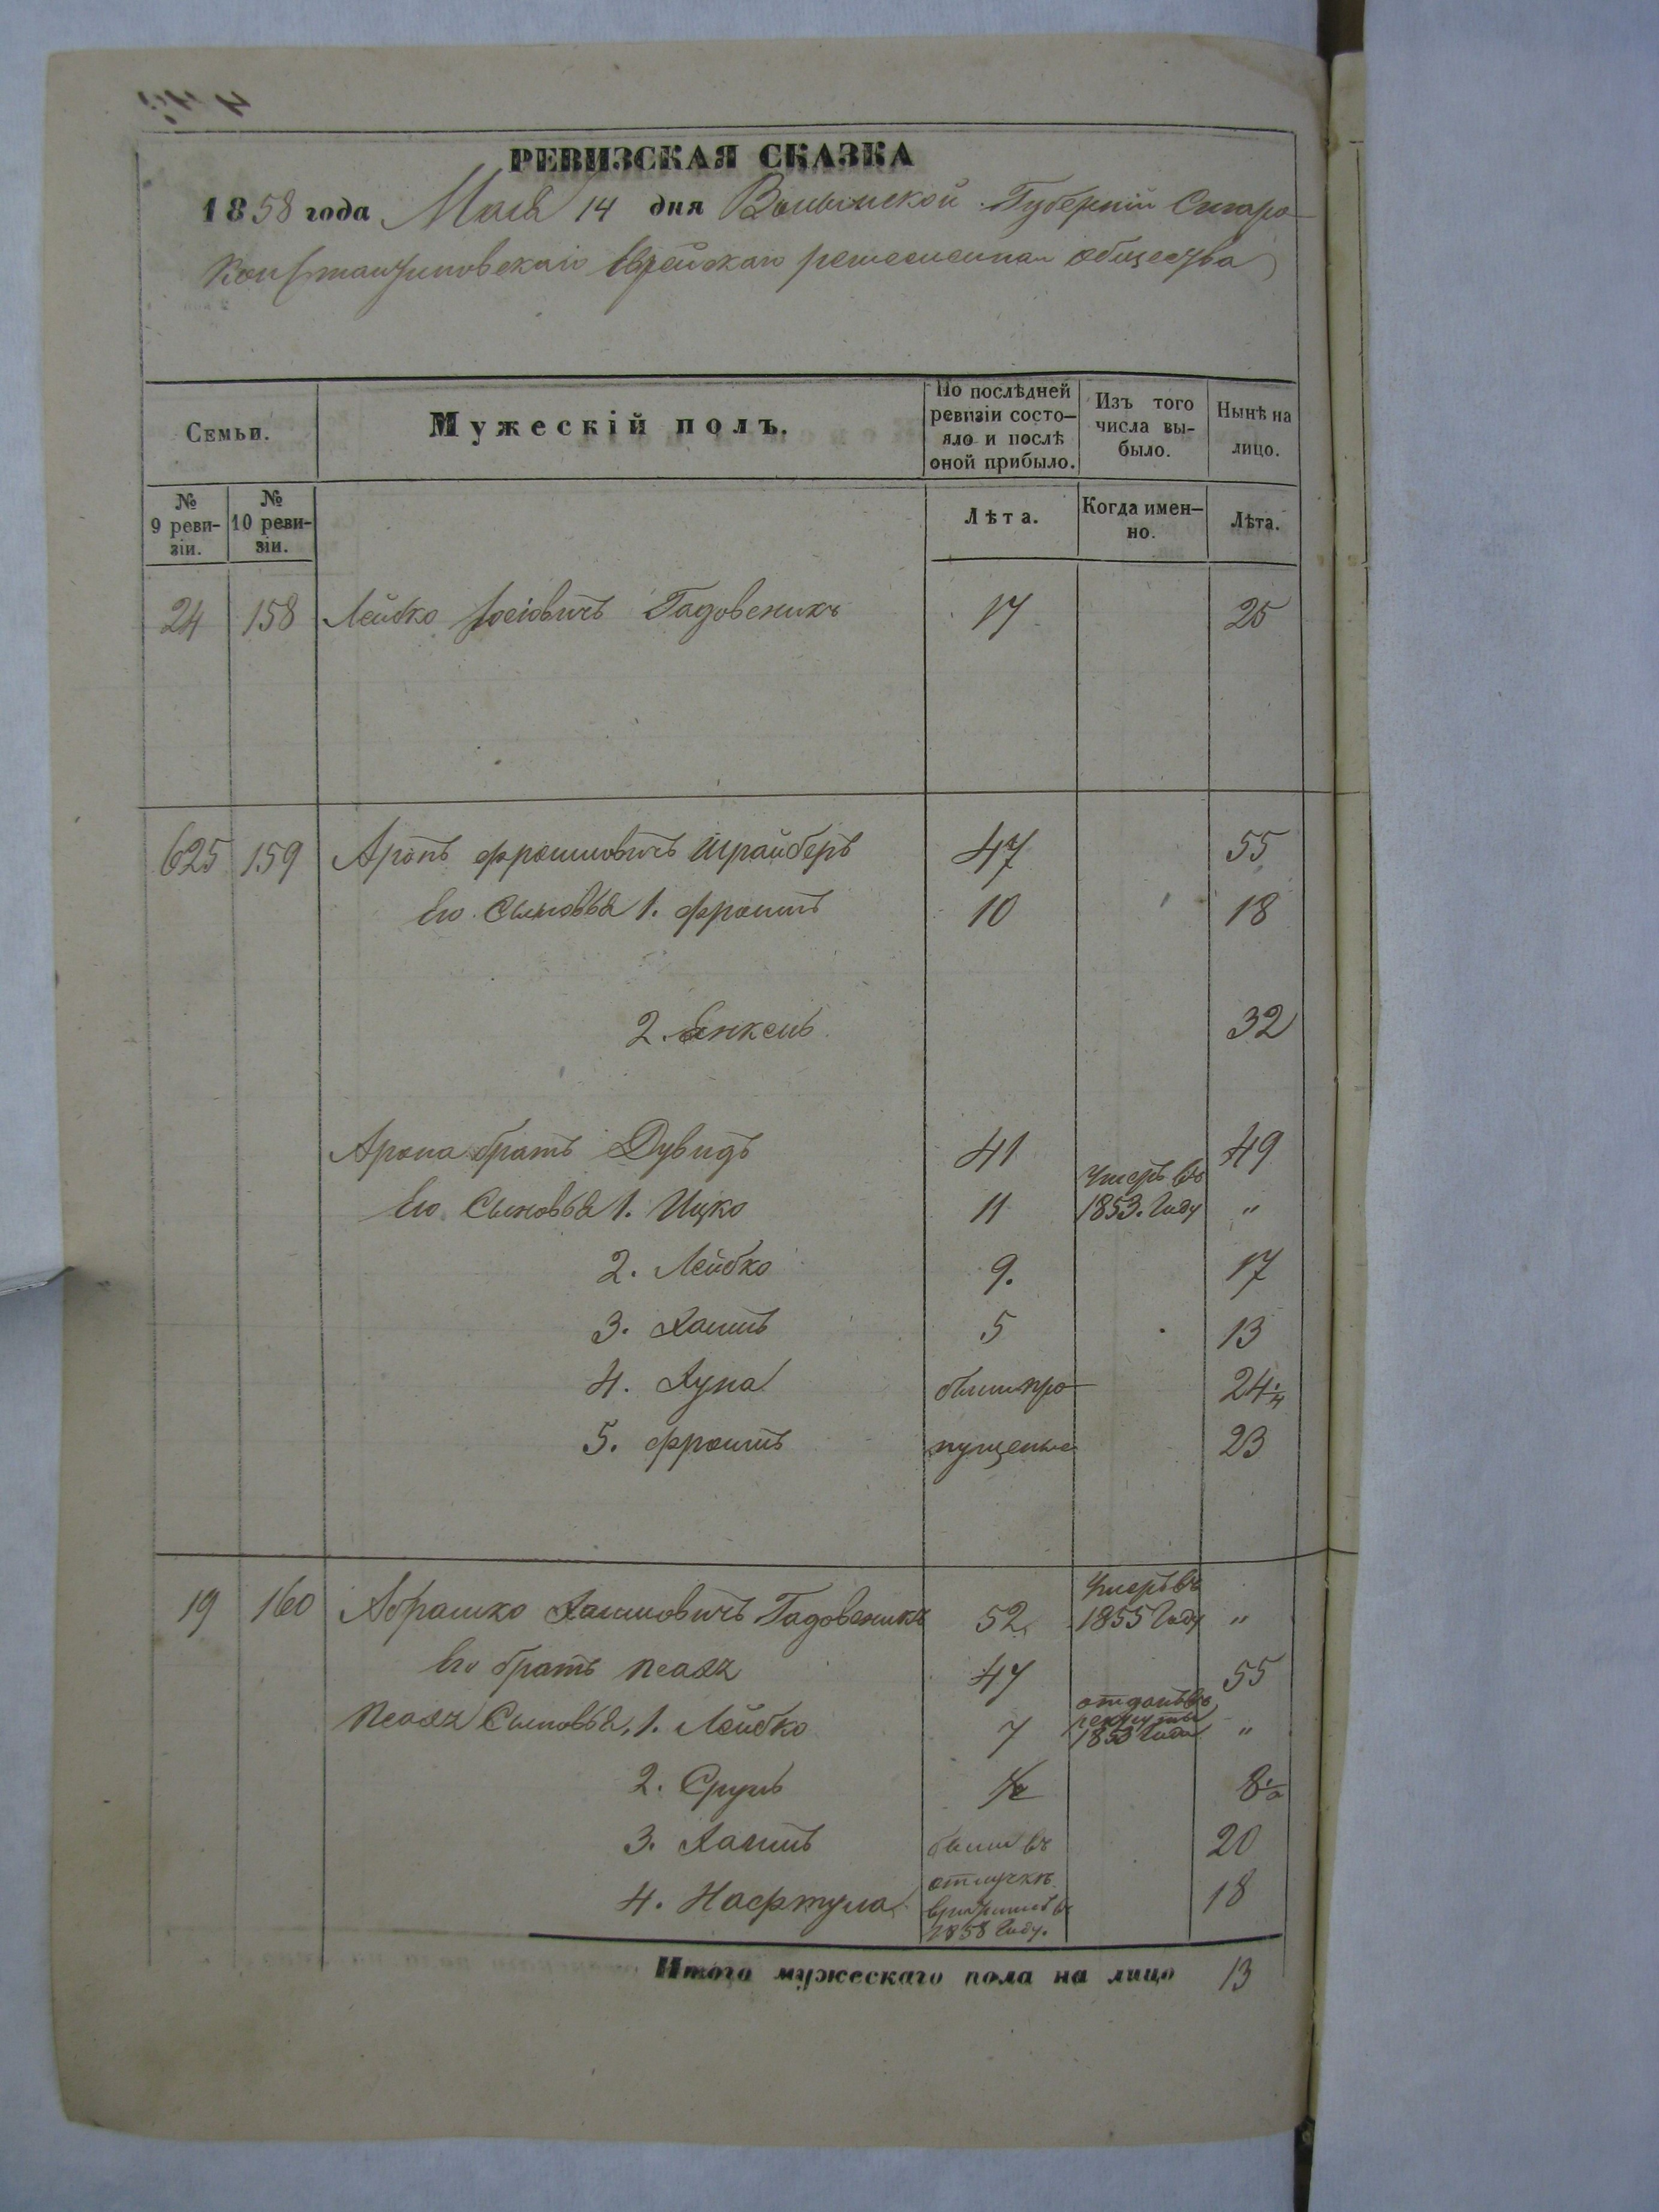 РЕВИЗСКАЯ СКАЗКА
1858 года Мая 14 дня Волынской Губерніи Старо-
Константиновскаго Еврейскаго ремесленнаго общества
Семьи.
Мужескій полъ.
По послѣдней ревизіи состо-яло и послѣ оной прибыло.
Изъ того числа вы-было.
Нынѣ на лицо.
№ 9 реви-зіи.
№ 10 реви-зіи.
Лѣта.
Когда имен-но.
Лѣта.
24 158 Лейбко Іосіовичъ Гадовеникъ 17 25
625 159 Аронъ Фроимовичъ Шрайберъ 47 55
Его Сыновья 1. Фроимъ 10 18
2. Янкель 32
Арона братъ Дувидъ 41 49
Его Сыновья 1. Ицко 11 Умеръ въ 1853. Году "
2. Лейбко 9. 17
3. Хаимъ 5 13
4. Хуна были про- 24
5. Фроимъ пущены 23
19 160 Абрашко Хаимовичъ Гадовеникъ 52 Умеръ въ 1855 Году "
Его братъ Песахъ 47 55
Песаха Сыновья, 1. Лейбко 7 отданъ въ рекруты 1853 Года "
2. Сруль 8½
3. Хаимъ были въ 20
4. Нафтула отлучкѣ 18
1858 Году.
Итого мужескаго пола на лицо 13